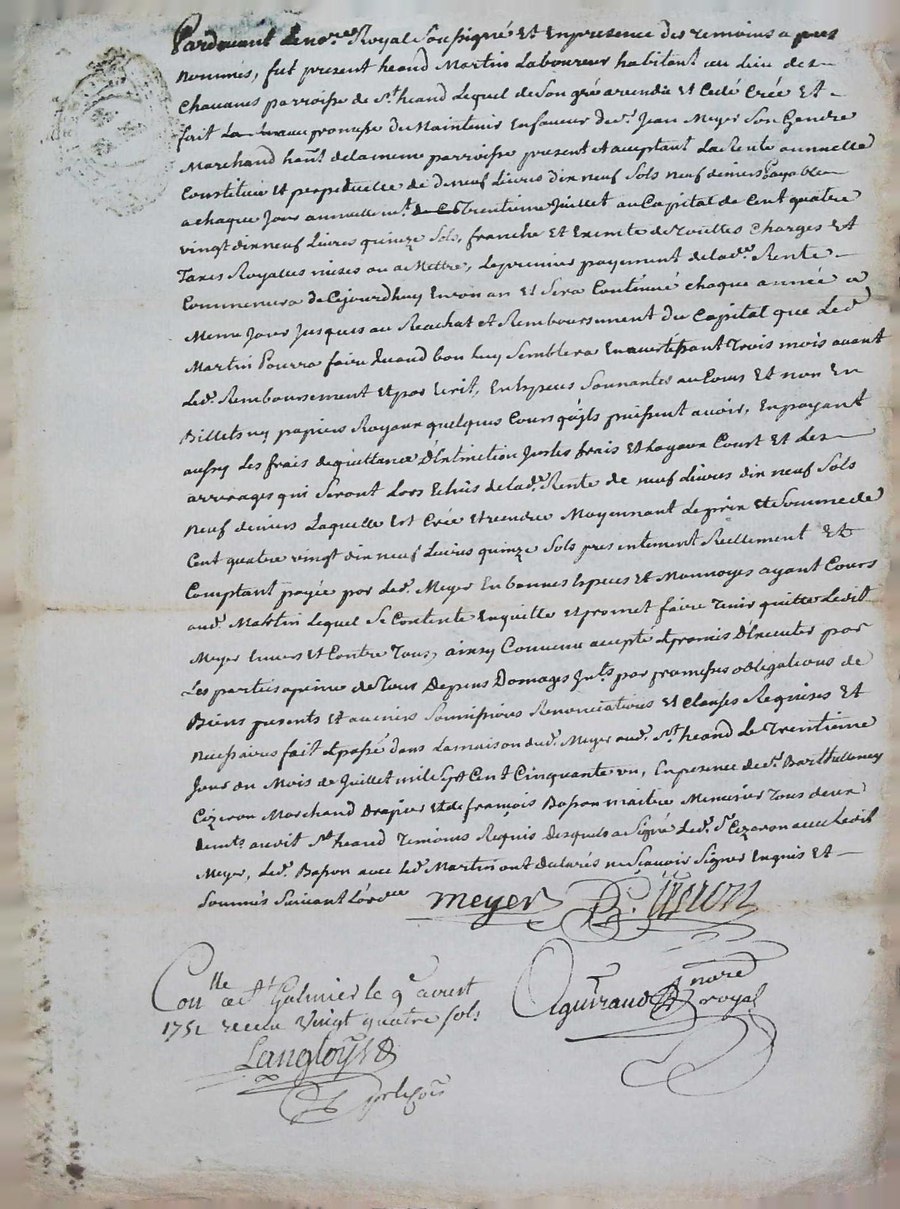 Pardevant Le no.re Royal Soussigné Et En presence des temoins apres
nommés, fut present heand Martin Laboureur habitant au Lieu des
Chauanes parroisse de S.t heand Lequel de Son gré a vendu Et Cedé Créé Et
fait promesse de Maintenir En faueur de s.r Jean Meyer Son Gendre
Marchand ha.nt de la meme parroisse present et acceptant La Rente annuelle
Constituée Et perpetuelle de neuf Livres dix neuf Sols neuf deniers payable
a chaque Jour trentieme Juillet au Capital de Cent quatre
vingt dix neuf Livres quinze Sols, franche Et Exemte de touttes Charges Et
Taxes Royalles mises ou a Mettre, Le premier payement de lad.e Rente
Commencera de Cejourdhuy En vn an Et Sera Continué chaque année a
Meme Jour Jusques au Reachat et Remboursement du Capital que Led.
Martin Pourra faire Quand bon Luy Semblera En auertissant Trois mois auant
Led. Remboursement Et par Ecrit, En Especes Sonnantes au Cours Et non En
Billets ny papiers Royaux quelques Cours qu'ils puissent auoir, En payant
aussy Les frais de quittance Justes frais Et Loyaux Cout Et Les
arrerages qui Seront Lors Echus de lad.e Rente de neuf Livres dix neuf Sols
neuf deniers Laquelle Est Créé Et vendue Moyennant Le prix Et Somme de
Cent quatre vingt dix neuf Livres quinze Sols presentement Reellement Et
Comptant payée par Led. Meyer En bonnes Especes Et Monnoyes ayant Cours
aud. Martin Lequel Se Contente En quitte Et promet faire Tenir quitte Ledit
Meyer Enuers Et Contre Tous, ainsy Conuenu accepté Et promis D'Executer par
Les parties a peine de Tous Depens Domages par promesses obligations de
Biens presents Et auenirs Soumissions Renonciations Et Clauses Requises Et
necessaires fait Et passé dans La maison dud. Meyer aud. S.t heand Le Trentieme
Jour du Mois de Juillet mile Sept Cent Cinquante vn, En presence de s.r Barthelemy
Cizeron Marchand Drapier Et de françois Basson maitre Menusier Tous deux
audit S.t heand Temoins Requis Desquels a Signé Led. S.r Cizeron auec Ledit
Meyer, Led. Basson avec Led. Martin ont declarés ne Sçauoir Signer Enquis Et
Sommés Suivant L'ord.ce
meyer B. Cizeron
Aguiraud no.re royal
Con.lle a S.t Galmier le 9.e aoust
1751 receu Vingt quatre sols
Langloys